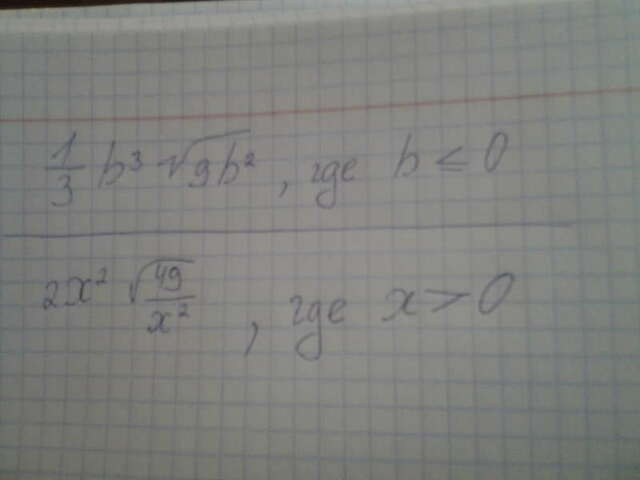 1/3 b³ √9b², где b ≤ 0
2x² √49/x², где x > 0